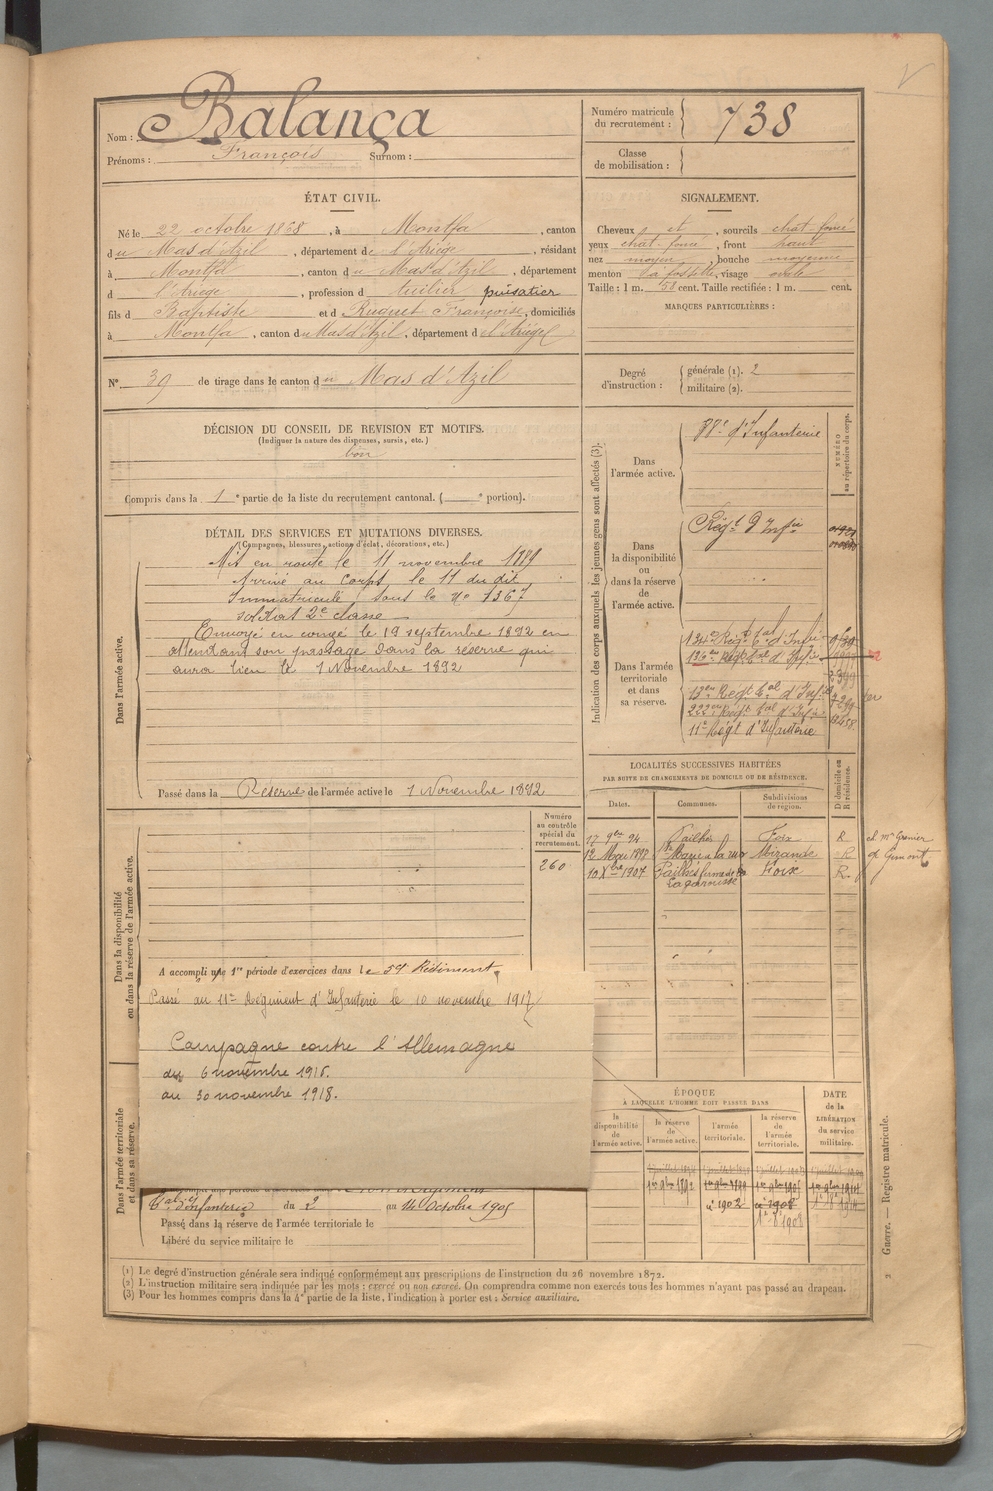 Nom : Balança
Prénoms : François Surnom :
Numéro matricule
du recrutement : 738
Classe
de mobilisation :
ÉTAT CIVIL.
Né le 22 octobre 1868, à Montfa, canton
du Mas d'Azil, département de l'Ariège, résidant
à Montfa, canton du Mas d'Azil, département
d l'Ariège, profession d tuilier puisatier
fils d Baptiste et d Ruquet Françoise, domiciliés
à Montfa, canton du Mas d'Azil, département d l'Ariège
SIGNALEMENT.
Cheveux et, sourcils chat. foncé
yeux chat. foncé, front haut
nez moyen, bouche moyenne
menton à fossette, visage ovale
Taille : 1 m. 51 cent. Taille rectifiée : 1 m. cent.
MARQUES PARTICULIÈRES :
N° 39 de tirage dans le canton du Mas d'Azil
Degré
d'instruction :
générale (1). 2
militaire (2).
DÉCISION DU CONSEIL DE REVISION ET MOTIFS.
(Indiquer la nature des dispenses, sursis, etc.)
bon
Compris dans la 1e partie de la liste du recrutement cantonal. ( e portion).
DÉTAIL DES SERVICES ET MUTATIONS DIVERSES.
(Campagnes, blessures, actions d'éclat, décorations, etc.)
Dans l'armée active.
Mis en route le 11 novembre 1889
Arrivé au Corps, le 11 du dit
Immatriculé sous le No 1367
soldat 2e classe
Envoyé en congé le 19 septembre 1892 en
attendant son passage dans la réserve qui
aura lieu le 1 Novembre 1892
Passé dans la Réserve de l'armée active le 1 Novembre 1892
Indication des corps auxquels les jeunes gens sont affectés (3).
Dans
l'armée active.
d'Infanterie
NUMÉRO
au répertoire du corps.
Dans
la disponibilité
ou
dans la réserve
de
l'armée active.
Régt d'Infie
Dans l'armée
territoriale
et dans
sa réserve.
134e Régt tal d'Infie
136e Régt tal d'Infie
13 Régt tal d'Infie
222 Régt tal d'Infie
11e Régt d'Infanterie
LOCALITÉS SUCCESSIVES HABITÉES
PAR SUITE DE CHANGEMENTS DE DOMICILE OU DE RÉSIDENCE.
D domicile ou
R résidence.
Dates. Communes. Subdivisions
de région.
17 9bre 94 Pailhès Foix R
12 Mai 1897 Mirande R
10 Xbre 1907 Pailhès ferme de Foix R.
Laparousse
ch Mr Grenier
de Gimont
Dans la disponibilité
ou dans la réserve de l'armée active.
Numéro
au contrôle
spécial du
recrutement.
260
A accompli une 1re période d'exercices dans le 59e Régiment
Passé au 11e Régiment d'Infanterie le 10 novembre 1917
Campagne contre l'Allemagne
du 6 novembre 1915.
au 30 novembre 1918.
Dans l'armée territoriale
et dans sa réserve.
tal d'Infanterie du 2 au 14 Octobre 1905
Passé dans la réserve de l'armée territoriale le
Libéré du service militaire le
ÉPOQUE
À LAQUELLE L'HOMME DOIT PASSER DANS
DATE
de la
LIBÉRATION
du service
militaire.
la
disponibilité
de
l'armée active.
la réserve
de
l'armée active.
l'armée
territoriale.
la réserve
de
l'armée
territoriale.
1er 9bre 1892
1902 1908
(1) Le degré d'instruction générale sera indiqué conformément aux prescriptions de l'instruction du 26 novembre 1872.
(2) L'instruction militaire sera indiquée par les mots : exercé ou non exercé. On comprendra comme non exercés tous les hommes n'ayant pas passé au drapeau.
(3) Pour les hommes compris dans la 4e partie de la liste, l'indication à porter est : Service auxiliaire.
Guerre. — Registre matricule.
2